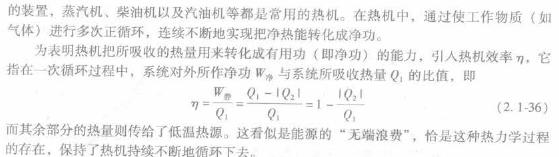 的装置，蒸汽机、柴油机以及汽油机等都是常用的热机。在热机中，通过使工作物质（如
气体）进行多次正循环，连续不断地实现把净热能转化成净功。
为表明热机把所吸收的热量用来转化成有用功（即净功）的能力，引人热机效率 η，它
指在一次循环过程中，系统对外所作净功 W净 与系统所吸收热量 Q₁ 的比值，即
η = W净/Q₁ = (Q₁ - |Q₂|)/Q₁ = 1 - |Q₂|/Q₁ (2.1-36)
而其余部分的热量则传给了低温热源。这看似是能源的“无端浪费”，恰是这种热力学过程
的存在，保持了热机持续不断地循环下去。